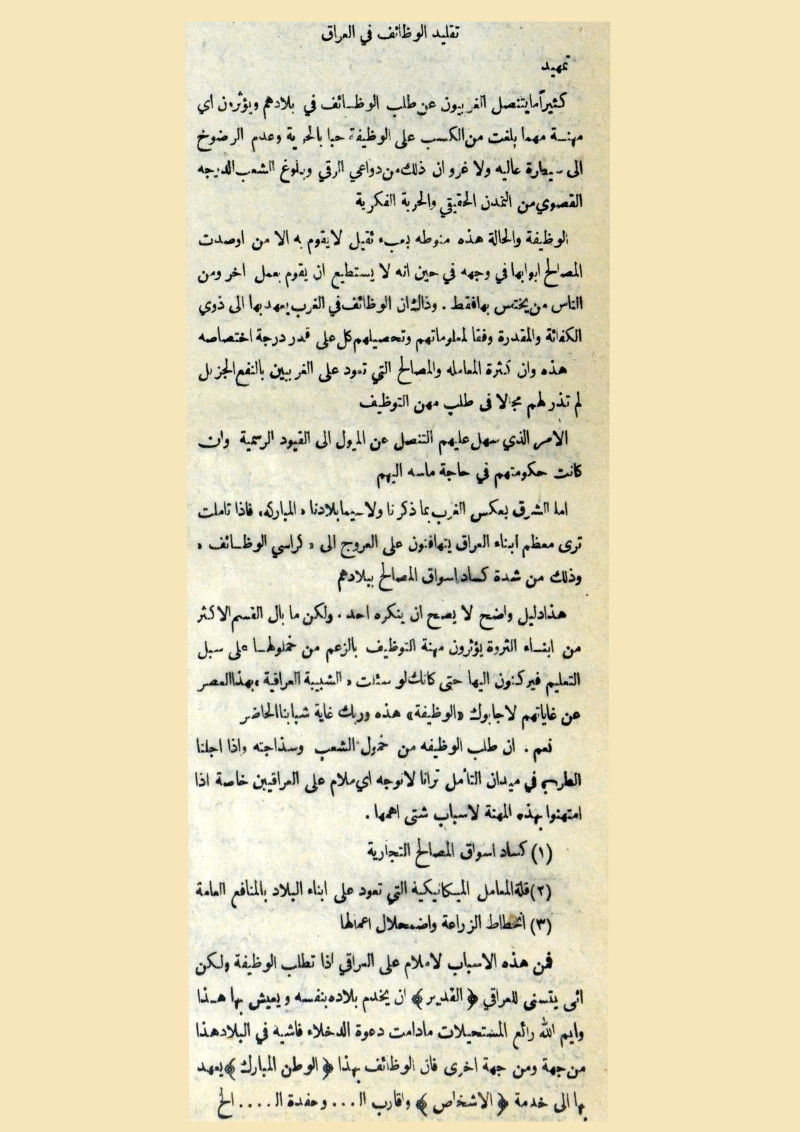 تقليد الوظائف في العراق
تمهيد
كثيراً ما يتنصل الغربيون عن طلب الوظائف في بلادهم ويؤثرون اي
مهنة مهما بلغت من الكسب على الوظيفة حبا بالحرية وعدم الرضوخ
الى سيطرة عاليه ولا غرو ان ذلك من دواعي الرقي وبلوغ الشعب الدرجه
القصوي من التمدن الحقيقي والحرية الفكرية
الوظيفة والحالة هذه منوطه بعبء ثقيل لا يقوم به الا من اوصدت
المصالح ابوابها في وجهه في حين انه لا يستطيع ان يقوم بعمل اخر ومن
الناس من يختص بها فقط . وذاك ان الوظائف في الغرب يعهد بها الى ذوي
الكفائة والمقدرة وفقا لمعلوماتهم وتحصيلهم كل على قدر درجة اختصاصه
هذه وان كثرة المعامله والمصالح التي تعود على الغربيين بالنفع الجزيل
لم تذر لهم مجالا في طلب مهن التوظيف
الامر الذي سهل عليهم التنصل عن الميول الى القيود الرسمية وان
كانت حكومتهم في حاجة ماسه اليهم
اما الشرق بعكس الغرب بما ذكرنا ولا سيما بلادنا « المباركه » فاذا تاملت
ترى معظم ابناء العراق يتهافتون على العروج الى « كراسي الوظائف »
وذلك من شدة كساد اسواق المصالح ببلادهم
هذا دليل واضح لا يصح ان ينكره احد . ولكن ما بال القسم الاكثر
من ابناء الثروة يؤثرون مهنة التوظيف بالزعم من خمولها على سبل
التعليم فيركنون اليها حتى كانك لو سئات « الشبيبة العراقية » بهذا العصر
عن غاياتهم لاجابوك «الوظيفة» هذه وربك غاية شبابنا الحاضر
نعم . ان طلب الوظيفه من خمول الشعب وسذاجته واذا اجلنا
الطرف في ميدان التأمل ترانا لا نوجه اي ملام على العراقيين خاصة اذا
امتهنوا بهذه المهنة لاسباب شتى اهمها .
(١) كساد اسواق المصالح التجارية
(٢) قلة المعامل الميكانيكية التي تعود على ابناء البلاد بالمنافع العامة
(٣) انحطاط الزراعة واضمحلال اعمالها
فمن هذه الاسباب لا ملام على العراقي اذا تطلب الوظيفة ولكن
انى يتسنى للعراقي ﴿ القدير ﴾ ان يخدم بلاده بنفسه ويعيش بها هذا
وايم الله رائع المستحيلات ما دامت دعوة الدخلاء فاشيه في البلاد هذا
من جهة ومن جهة اخرى فان الوظائف بهذا ﴿ الوطن المبارك ﴾ يعهد
بها الى خدمة ﴿ الاشخاص ﴾ واقارب الـ ... وحفدة الـ .... الخ